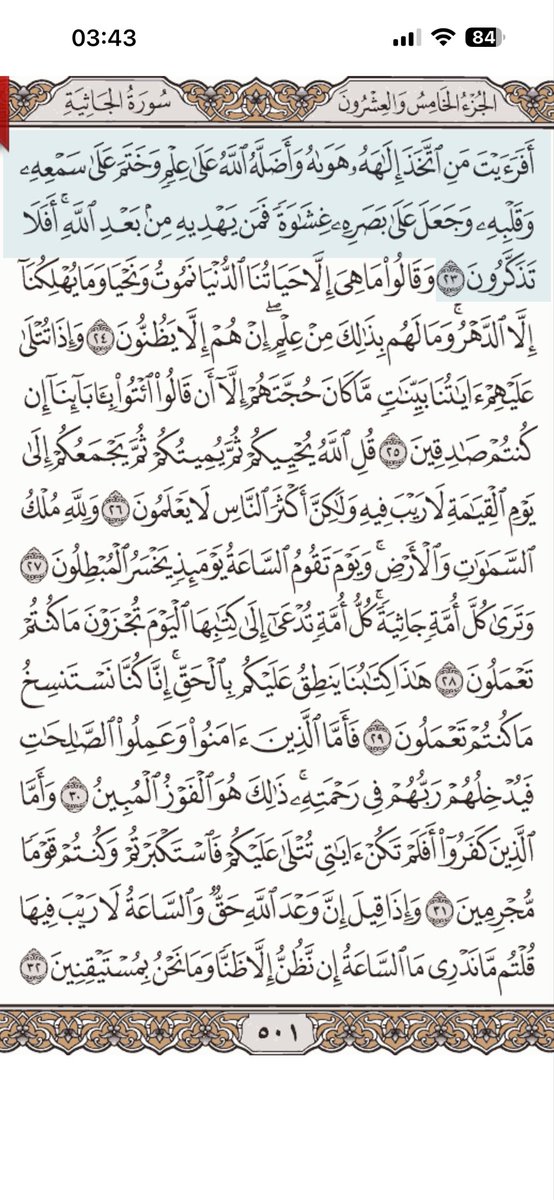 03:43 84
سُورَةُ الجَاثِيَةِ الجُزْءُ الخَامِسُ وَالعِشْرُونَ
أَفَرَءَيْتَ مَنِ ٱتَّخَذَ إِلَٰهَهُۥ هَوَىٰهُ وَأَضَلَّهُ ٱللَّهُ عَلَىٰ عِلْمٍ وَخَتَمَ عَلَىٰ سَمْعِهِۦ
وَقَلْبِهِۦ وَجَعَلَ عَلَىٰ بَصَرِهِۦ غِشَٰوَةً فَمَن يَهْدِيهِ مِنۢ بَعْدِ ٱللَّهِ ۚ أَفَلَا
تَذَكَّرُونَ ٢٣ وَقَالُوا۟ مَا هِىَ إِلَّا حَيَاتُنَا ٱلدُّنْيَا نَمُوتُ وَنَحْيَا وَمَا يُهْلِكُنَآ
إِلَّا ٱلدَّهْرُ ۚ وَمَا لَهُم بِذَٰلِكَ مِنْ عِلْمٍ ۖ إِنْ هُمْ إِلَّا يَظُنُّونَ ٢٤ وَإِذَا تُتْلَىٰ
عَلَيْهِمْ ءَايَٰتُنَا بَيِّنَٰتٍ مَّا كَانَ حُجَّتَهُمْ إِلَّآ أَن قَالُوا۟ ٱئْتُوا۟ بِـَٔابَآئِنَآ إِن
كُنتُمْ صَٰدِقِينَ ٢٥ قُلِ ٱللَّهُ يُحْيِيكُمْ ثُمَّ يُمِيتُكُمْ ثُمَّ يَجْمَعُكُمْ إِلَىٰ
يَوْمِ ٱلْقِيَٰمَةِ لَا رَيْبَ فِيهِ وَلَٰكِنَّ أَكْثَرَ ٱلنَّاسِ لَا يَعْلَمُونَ ٢٦ وَلِلَّهِ مُلْكُ
ٱلسَّمَٰوَٰتِ وَٱلْأَرْضِ ۚ وَيَوْمَ تَقُومُ ٱلسَّاعَةُ يَوْمَئِذٍ يَخْسَرُ ٱلْمُبْطِلُونَ ٢٧
وَتَرَىٰ كُلَّ أُمَّةٍ جَاثِيَةً ۚ كُلُّ أُمَّةٍ تُدْعَىٰٓ إِلَىٰ كِتَٰبِهَا ٱلْيَوْمَ تُجْزَوْنَ مَا كُنتُمْ
تَعْمَلُونَ ٢٨ هَٰذَا كِتَٰبُنَا يَنطِقُ عَلَيْكُم بِٱلْحَقِّ ۚ إِنَّا كُنَّا نَسْتَنسِخُ
مَا كُنتُمْ تَعْمَلُونَ ٢٩ فَأَمَّا ٱلَّذِينَ ءَامَنُوا۟ وَعَمِلُوا۟ ٱلصَّٰلِحَٰتِ
فَيُدْخِلُهُمْ رَبُّهُمْ فِى رَحْمَتِهِۦ ۚ ذَٰلِكَ هُوَ ٱلْفَوْزُ ٱلْمُبِينُ ٣٠ وَأَمَّا
ٱلَّذِينَ كَفَرُوٓا۟ أَفَلَمْ تَكُنْ ءَايَٰتِى تُتْلَىٰ عَلَيْكُمْ فَٱسْتَكْبَرْتُمْ وَكُنتُمْ قَوْمًا
مُّجْرِمِينَ ٣١ وَإِذَا قِيلَ إِنَّ وَعْدَ ٱللَّهِ حَقٌّ وَٱلسَّاعَةُ لَا رَيْبَ فِيهَا
قُلْتُم مَّا نَدْرِى مَا ٱلسَّاعَةُ إِن نَّظُنُّ إِلَّا ظَنًّا وَمَا نَحْنُ بِمُسْتَيْقِنِينَ ٣٢
٥٠١